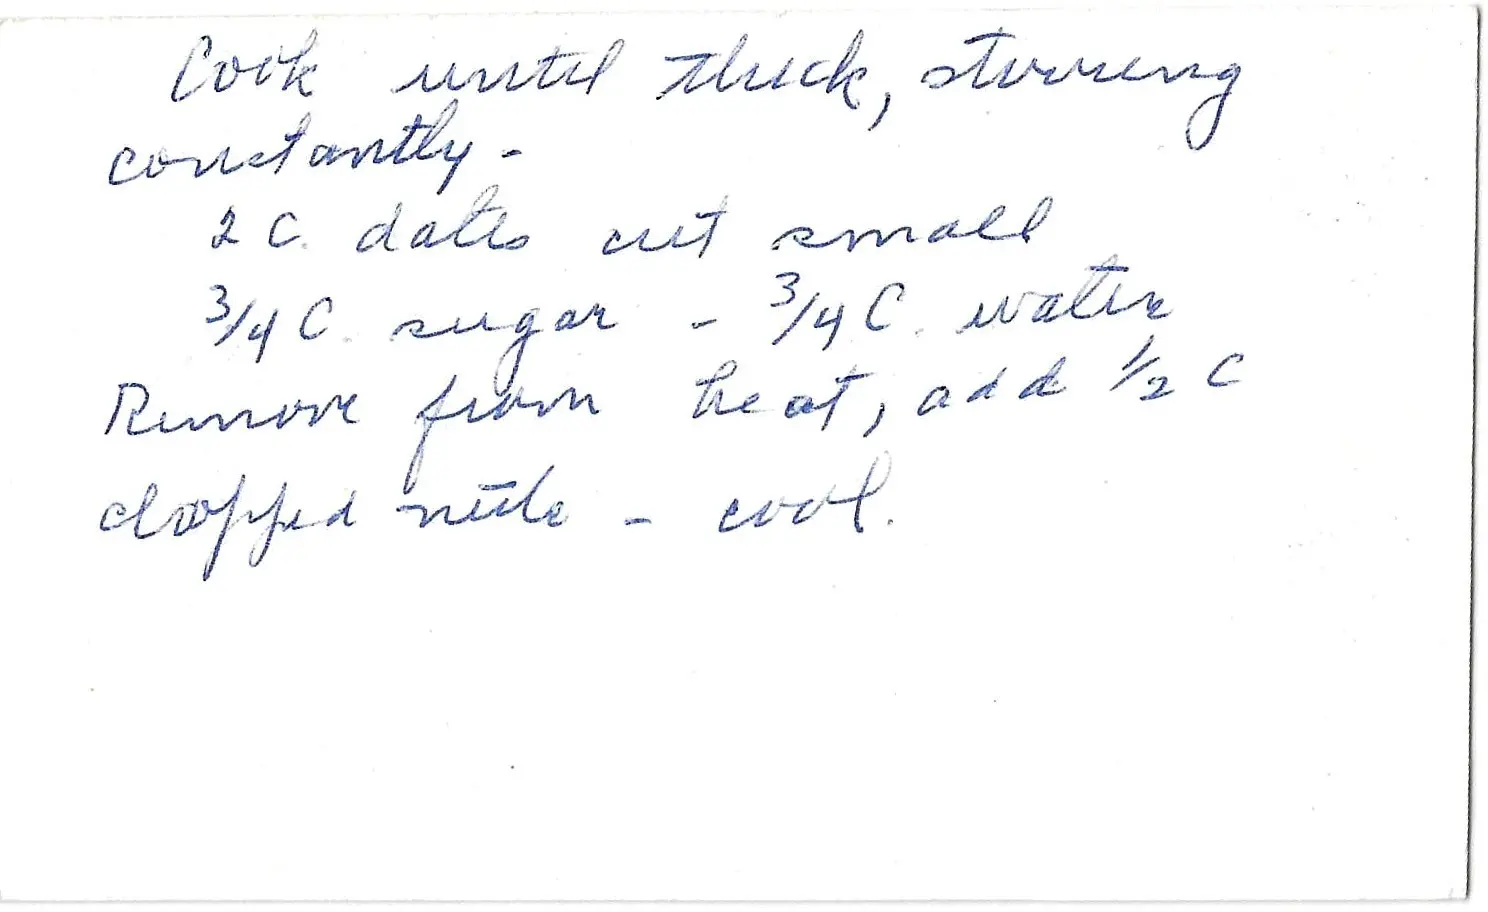 Cook until thick, stirring
constantly -
2 C. dates cut small
3/4 C. sugar - 3/4 C. water
Remove from heat, add 1/2 C
chopped nuts - cool.